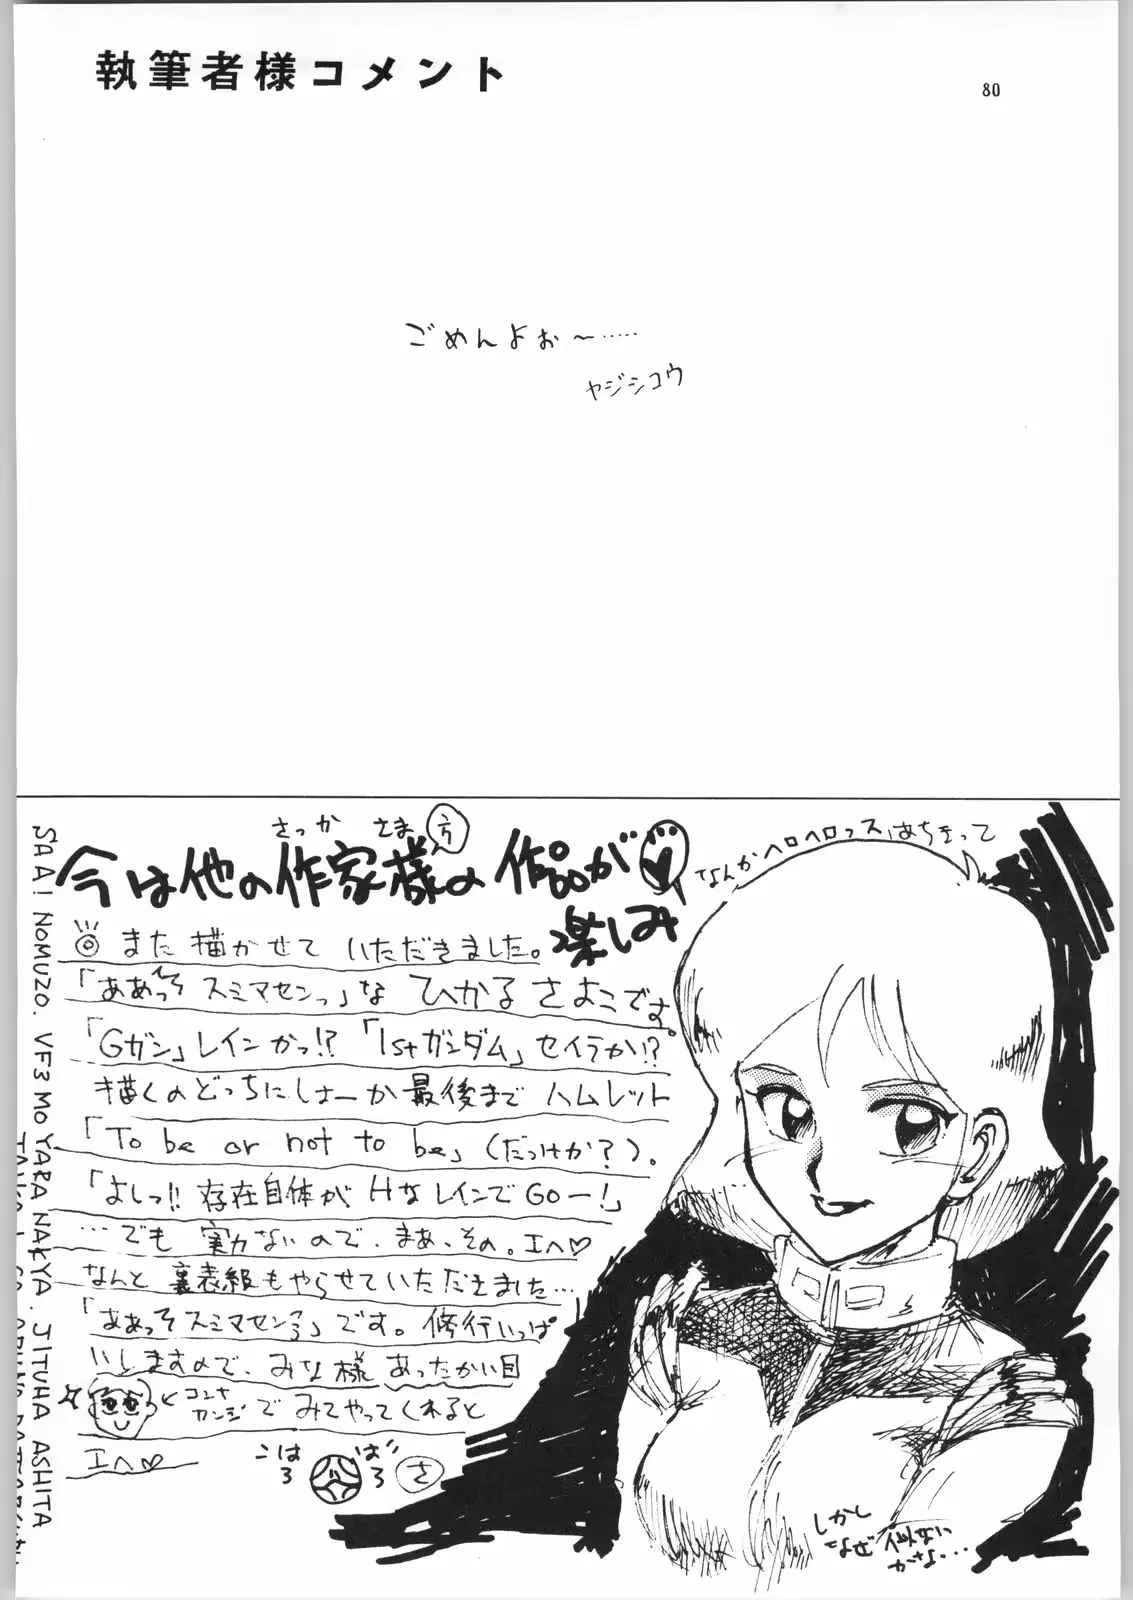 執筆者様コメント
80
ごめんよぉ～……
ヤジシコウ
さっか さま 方
今は他の作家様の作品が
楽しみ
なんかヘロヘロっス
また描かせていただきました。
「ああっそスミマセンっ」な ひかるさよこです。
「Gガン」レインかっ!?「1stガンダム」セイラか!?
描くのどっちにしよーか最後までハムレット
「To be or not to be」(だっけか?)。
「よしっ!!存在自体がHなレインでGOー!」
…でも実力ないので、まあ、その。エヘ♡
なんと裏表紙もやらせていただきました…
「ああっそスミマセンっ」です。修行いっぱ
いしますので、みな様あったかい目
コンナカンジ
でみてやってくれると
エヘ♡
さ
しかし
なぜ似ない
かな…
SAA! NOMUZO. VF3 MO YARA NAKYA. JITUHA ASHITA